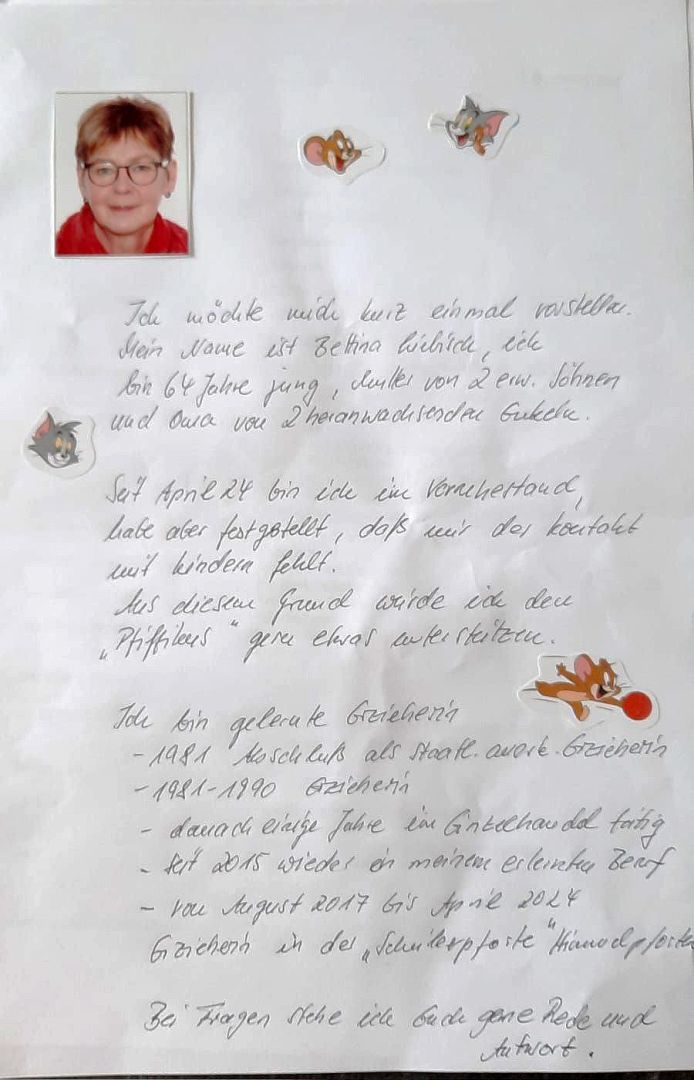 Ich möchte mich kurz einmal vorstellen.
Mein Name ist Bettina, ich
bin 64 Jahre jung, Mutter von 2 erw. Söhnen
und Oma von 2 heranwachsenden Enkeln.
Seit April 24 bin ich im Vorruhestand,
habe aber festgestellt, daß mir der Kontakt
mit Kindern fehlt.
Aus diesem Grund würde ich den
„Pfiffikus" gern etwas unterstützen.
Ich bin gelernte Erzieherin
- 1981 Abschluß als staatl. anerk. Erzieherin
- 1981-1990 Erzieherin
- danach einige Jahre im Einzelhandel tätig
- seit 2015 wieder in meinem erlernten Beruf
- von August 2017 bis April 2024
Erzieherin in der „Schülerpforte" Himmelpforten
Bei Fragen stehe ich Euch gerne Rede und
Antwort.